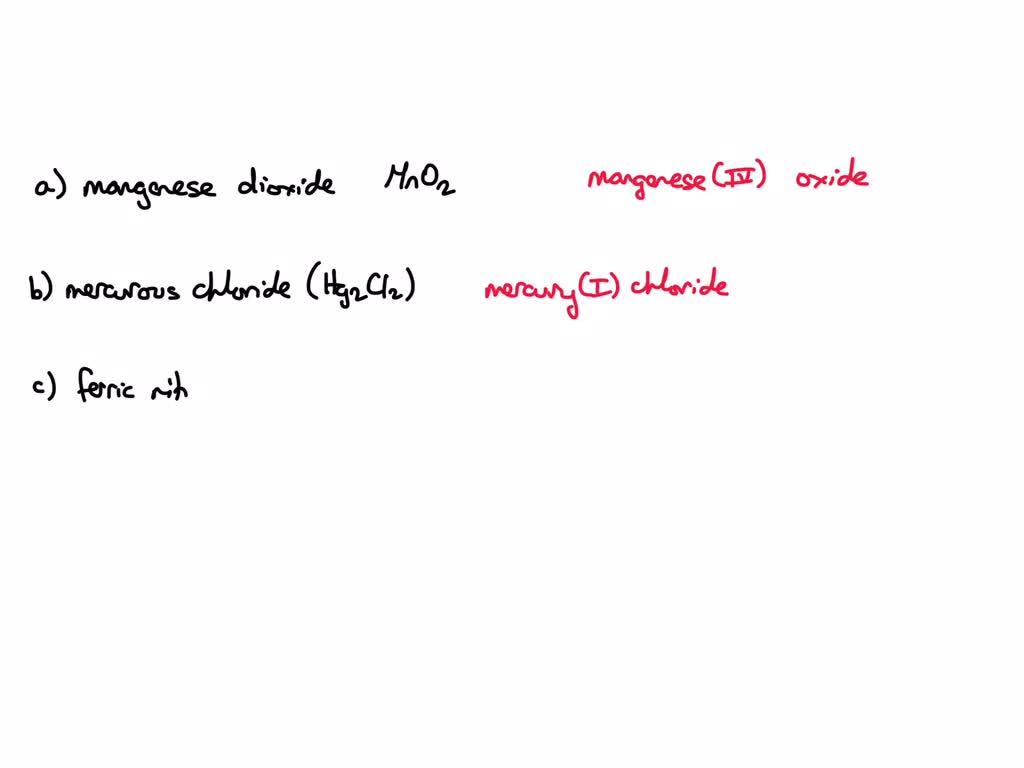 a) manganese dioxide MnO2 manganese (IV) oxide
b) mercurous chloride (Hg2Cl2) mercury (I) chloride
c) ferric nit